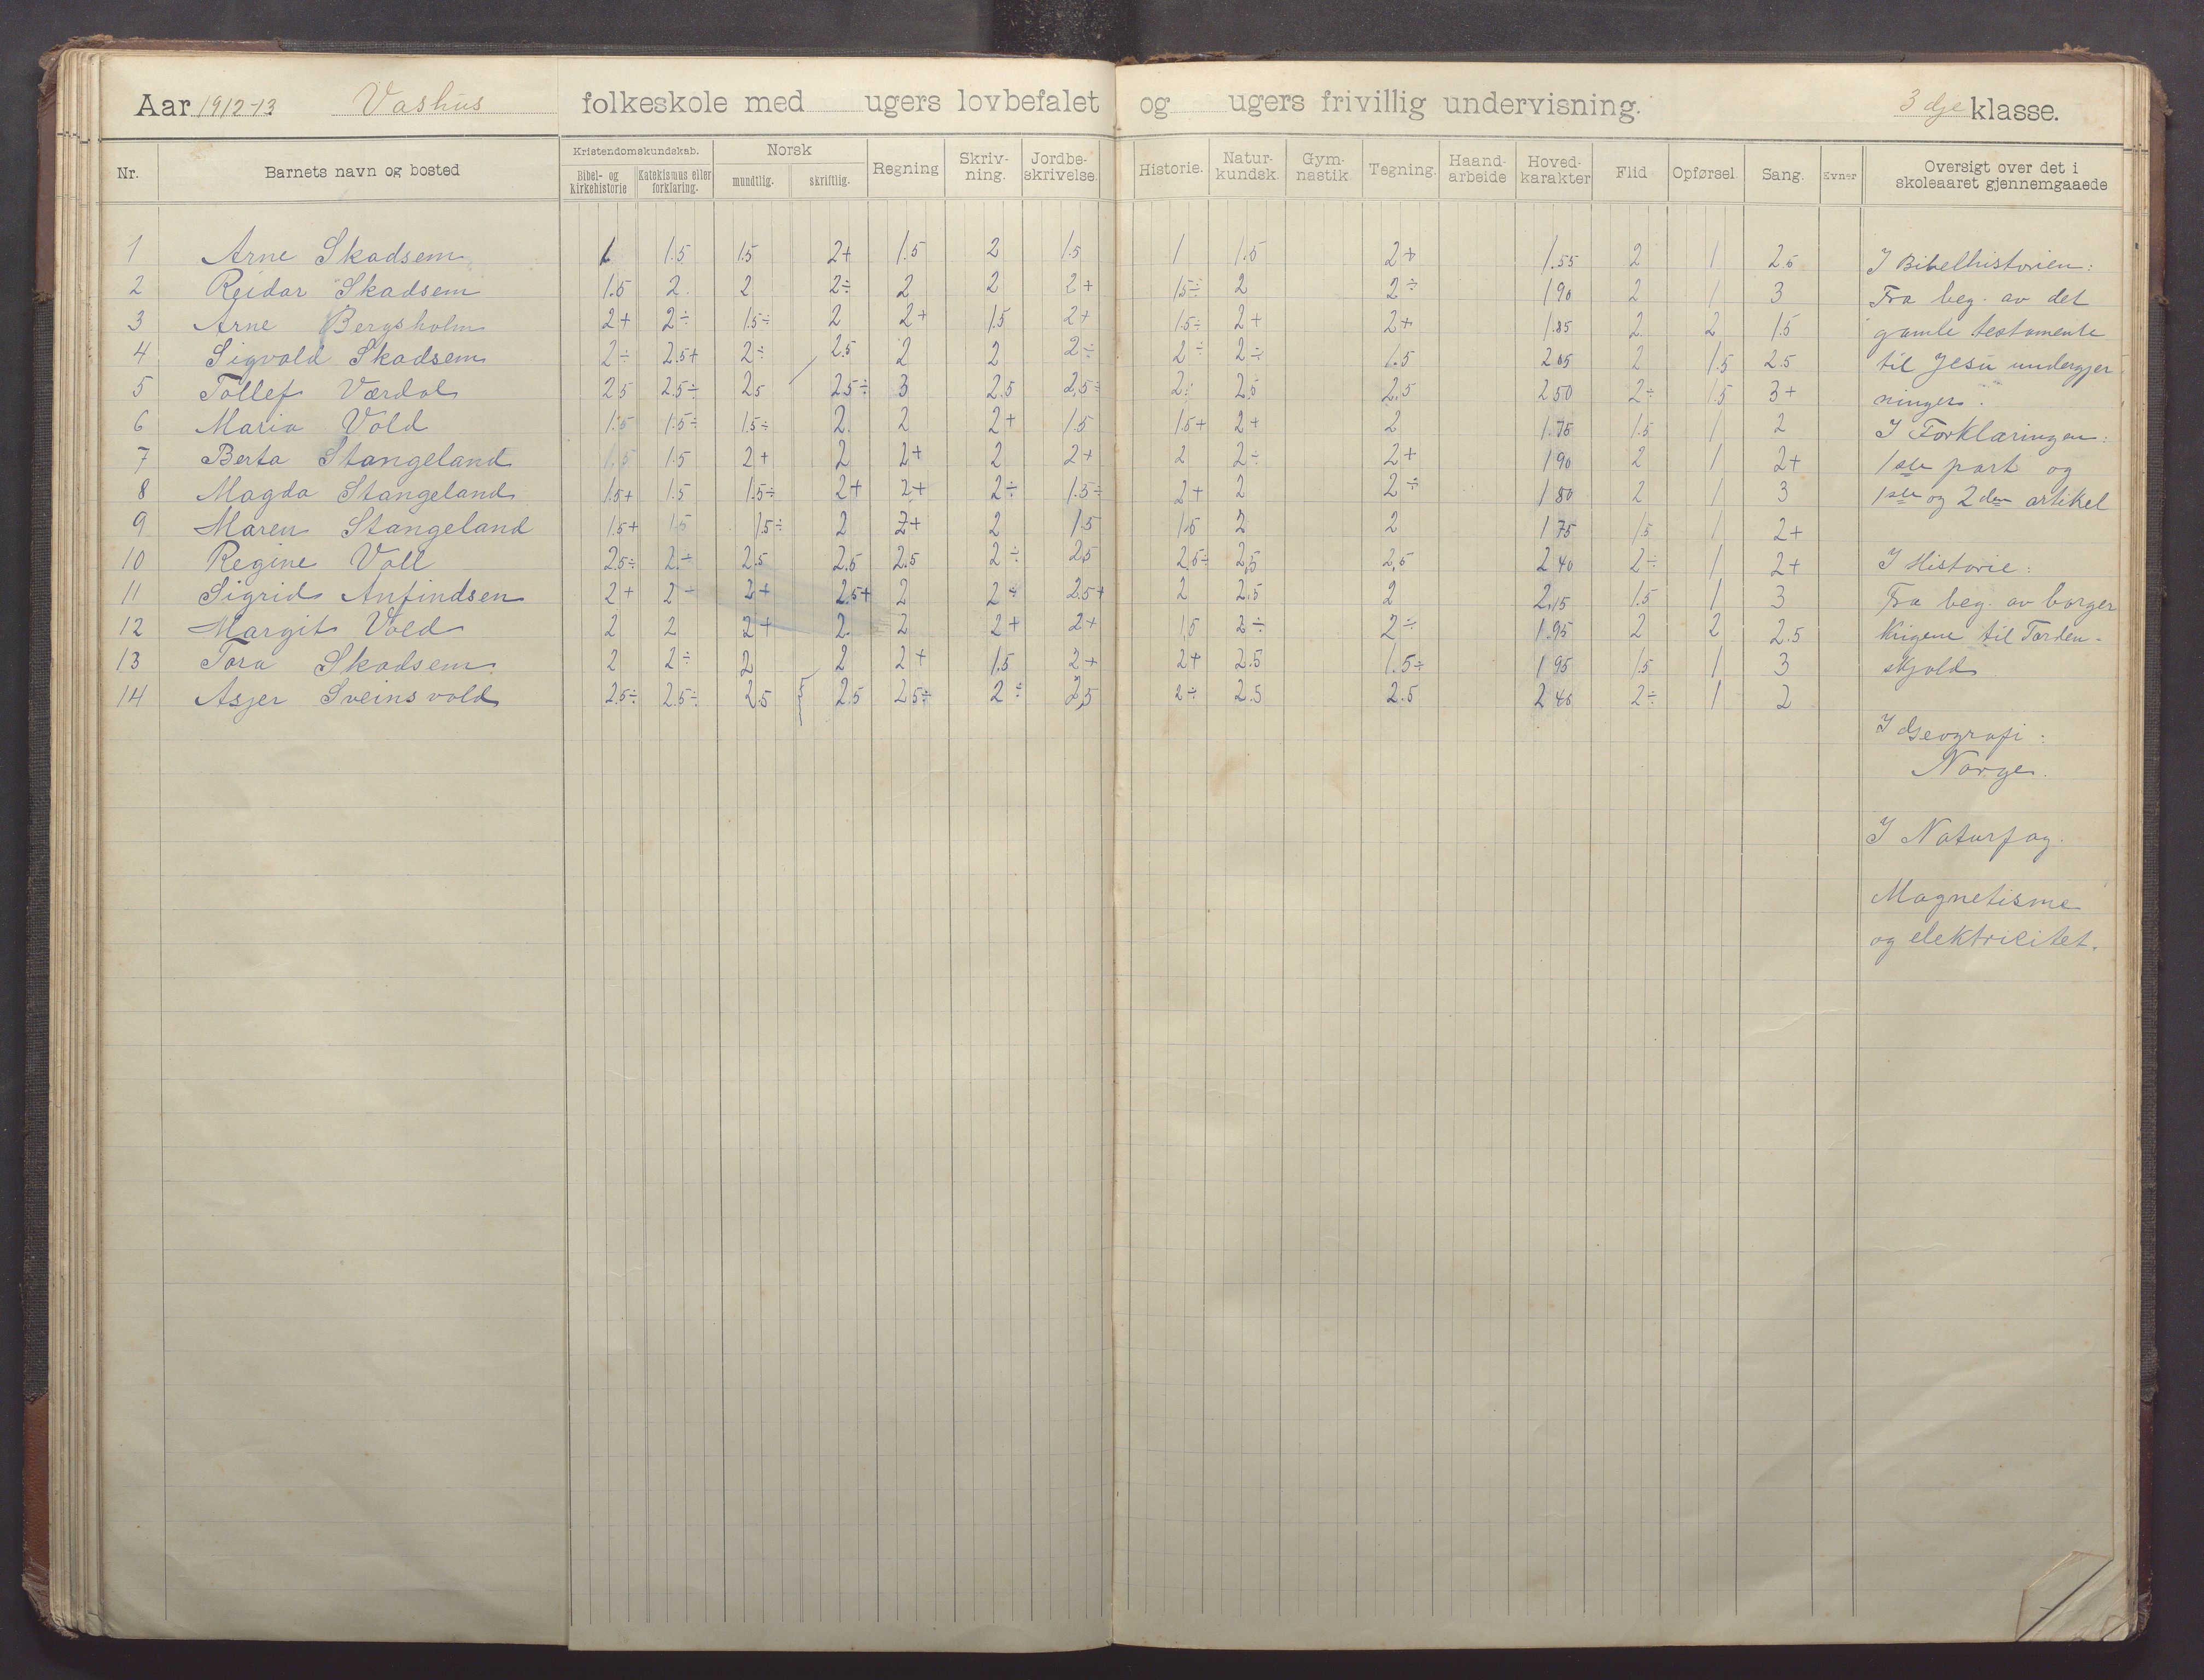 Aar 1912-13 Vashus folkeskole med ugers lovbefalet og ugers frivillig undervisning. 3dje klasse.
Nr. Barnets navn og bosted Kristendomskundskab. Bibel- og kirkehistorie Katekismus eller forklaring. Norsk mundtlig. skriftlig. Regning Skriv-ning. Jordbe-skrivelse. Historie. Natur-kundsk. Gym-nastik Tegning. Haand-arbeide Hoved-karakter Flid Opførsel Sang. Evner Oversigt over det i skoleaaret gjennemgaaede
1 Arne Skadsem 1 1.5 1.5 2+ 1.5 2 1.5 1 1.5 2+ 1.55 2 1 2.5
2 Reidar Skadsem 1.5 2 2 2÷ 2 2 2+ 1.5÷ 2 2÷ 1.90 2 1 3
3 Arne Bergsholm 2+ 2÷ 1.5÷ 2 2+ 1.5 2+ 1.5÷ 2+ 2+ 1.85 2 2 1.5
4 Sigvald Skadsem 2÷ 2.5+ 2÷ 2.5 2 2 2÷ 2÷ 2÷ 1.5 2.05 2 1.5 2.5
5 Tollef Værdal 2.5 2.5÷ 2.5 2.5÷ 3 2.5 2,5÷ 2÷ 2,5 2.5 2.50 2÷ 1.5 3+
6 Maria Vold 1.5 1.5÷ 1.5÷ 2. 2 2+ 1.5 1.5+ 2+ 2 1.75 1.5 1 2
7 Berta Stangeland 1.5 1.5 2+ 2 2+ 2 2+ 2 2÷ 2+ 1.90 2 1 2+
8 Magda Stangeland 1.5+ 1.5 1.5÷ 2+ 2+ 2÷ 1.5÷ 2+ 2 2÷ 1.80 2 1 3
9 Maren Stangeland 1.5+ 1.5 1.5÷ 2 2+ 2 1.5 1.5 2 2 1.75 1.5 1 2+
10 Regine Voll 2.5÷ 2.÷ 2.5 2.5 2.5 2÷ 2,5 2,5÷ 2,5 2,5 2.40 2÷ 1 2+
11 Sigrid Anfindsen 2+ 2÷ 2+ 2.5+ 2 2÷ 2.5+ 2 2,5 2 2.15 1.5 1 3
12 Margit Vold 2 2 2+ 2. 2 2+ 2+ 1,5 2÷ 2÷ 1.95 2 2 2.5
13 Tora Skadsem 2 2÷ 2 2 2+ 1.5 2+ 2+ 2.5 1.5÷ 1.95 1.5 1 3
14 Asjer Sveinsvold 2.5÷ 2.5÷ 2.5 2.5 2.5÷ 2÷ 2,5 2÷ 2.5 2.5 2.40 2÷ 1 2
I Bibelhistorien:
Fra beg. av det
gamle testamente
til Jesu undergjer
ninger.
I Forklaringen:
1ste part og
1ste og 2den artikel
I Historie:
Fra beg. av borger
krigene til Torden-
skjold
I Geografi:
Norge.
I Naturfag.
Magnetisme
og elektricitet.